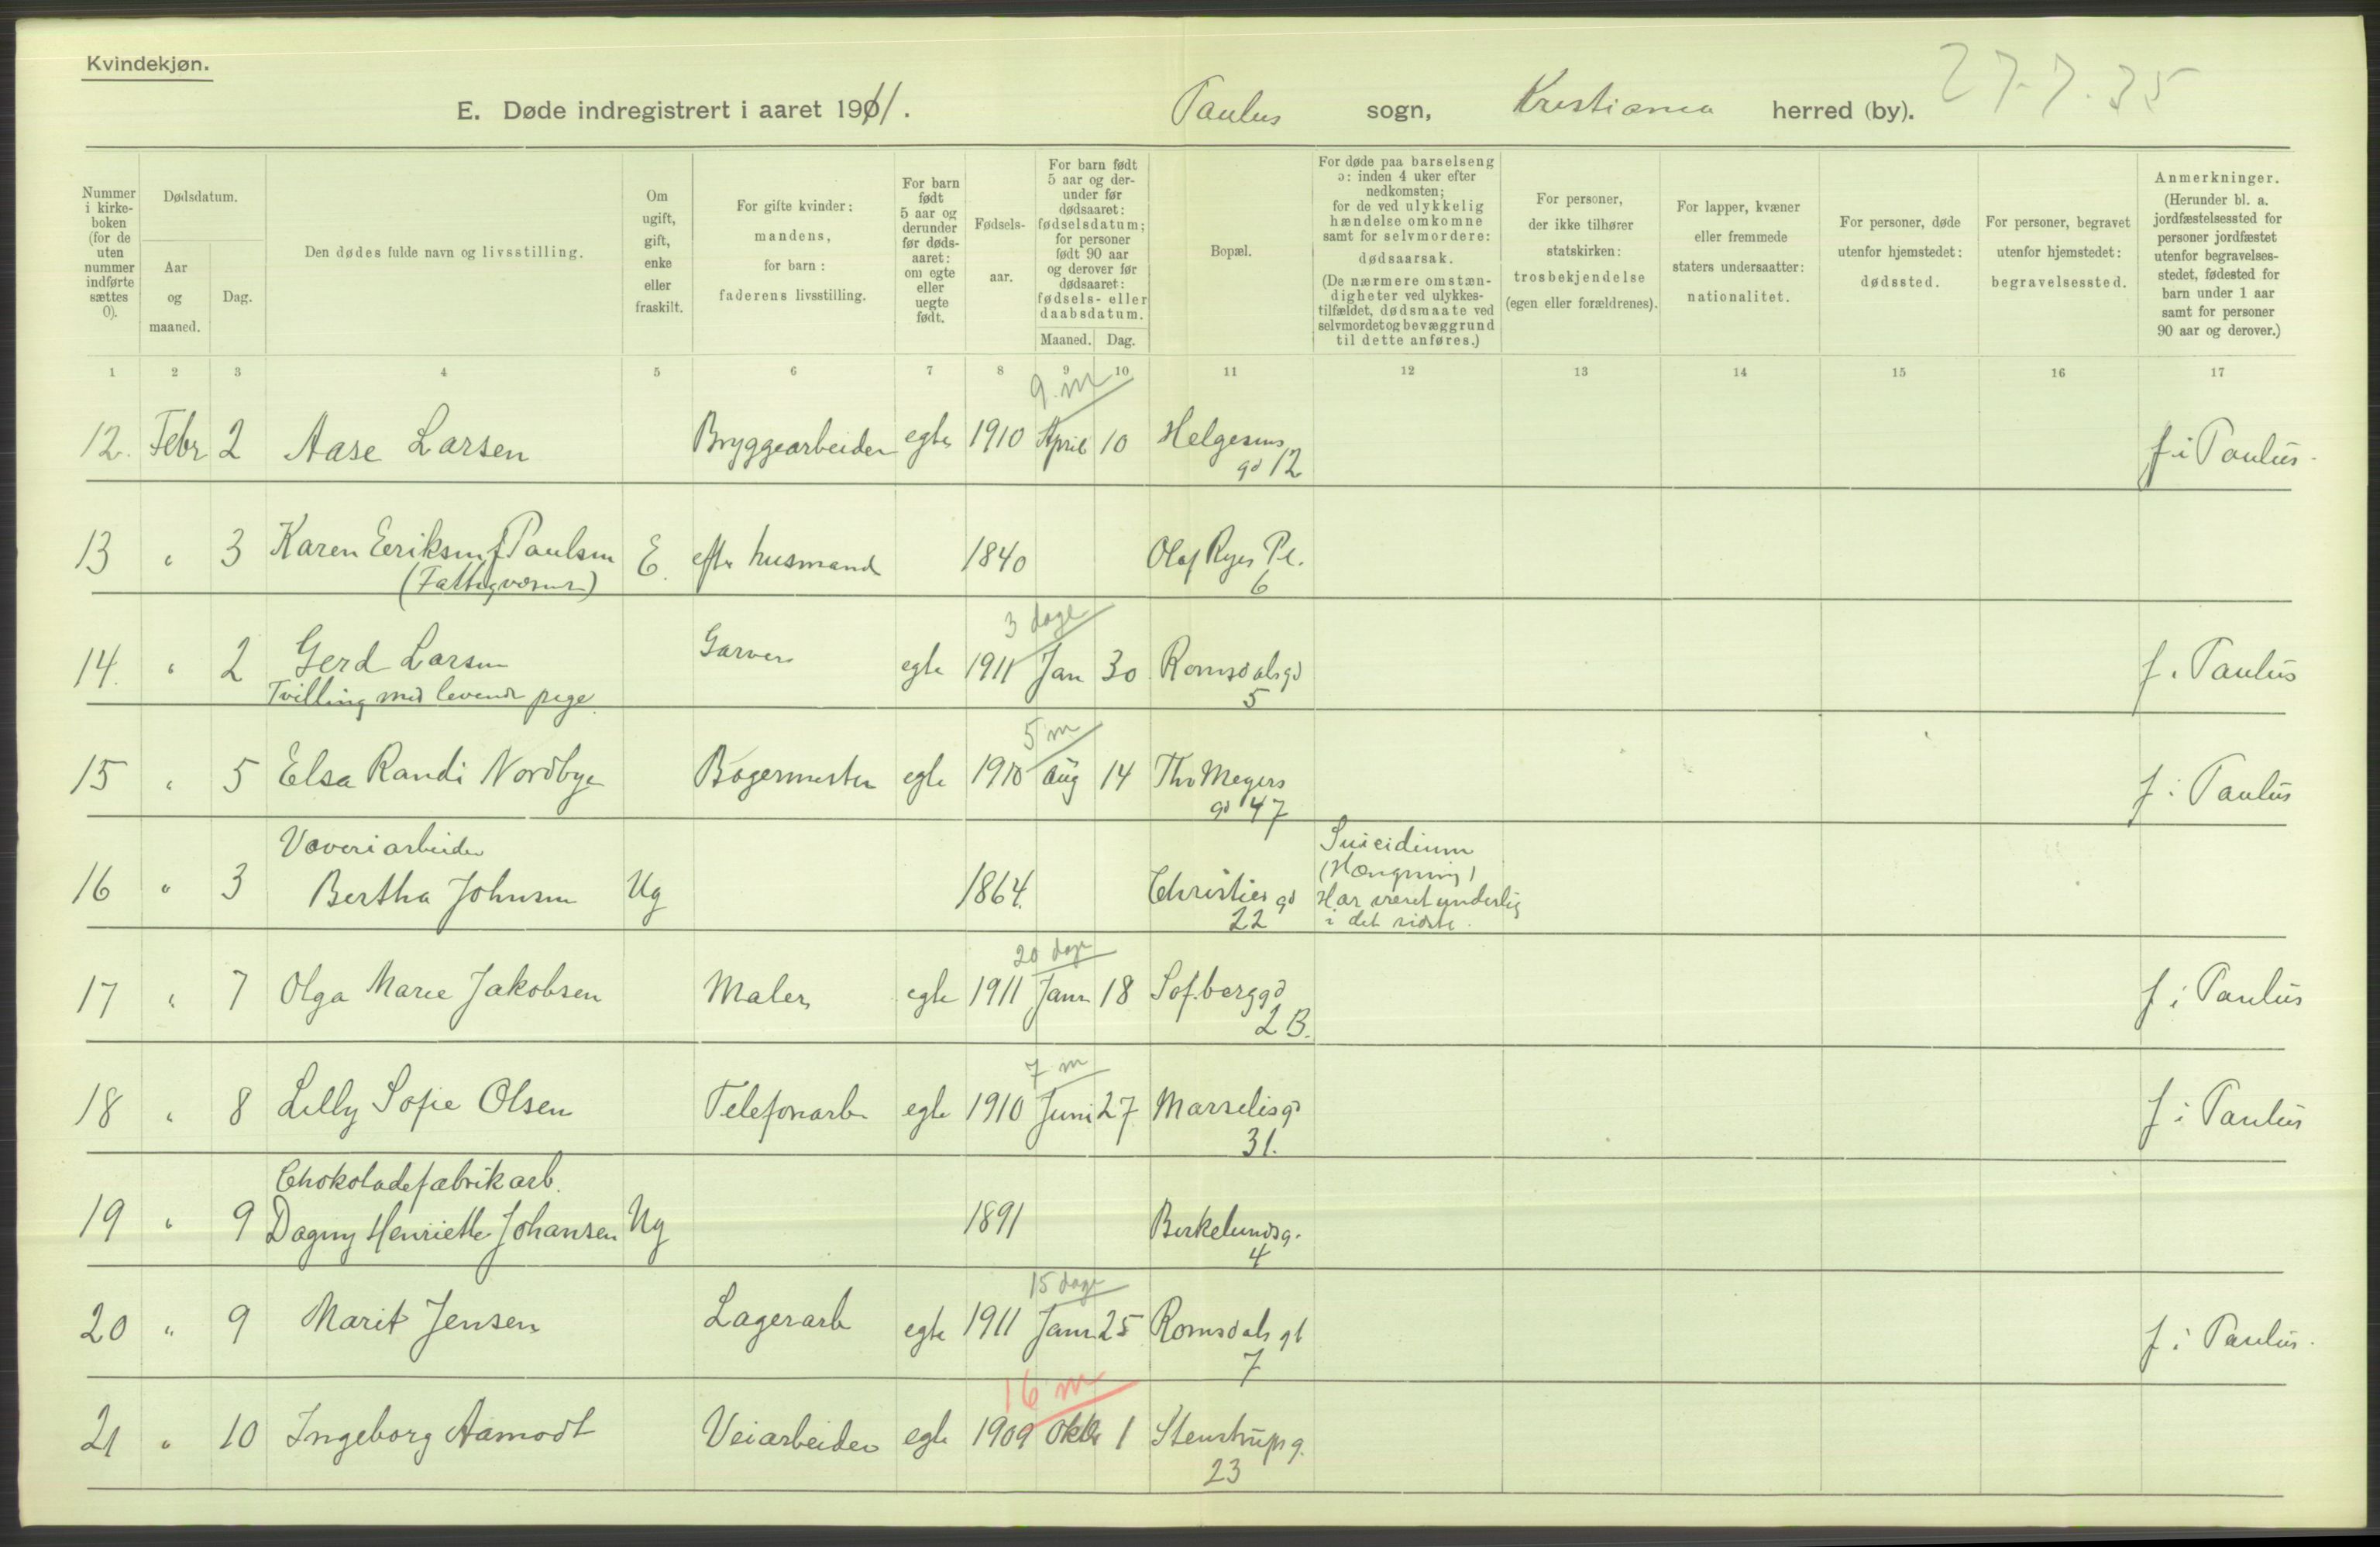 Kvindekjøn.
27-7-35
E. Døde indregistrert i aaret 1911. Paulus sogn, Kristiania herred (by).
Nummer i kirke-boken (for de uten nummer indførte sættes 0).
Dødsdatum.
Aar og maaned.
Dag.
Den dødes fulde navn og livsstilling.
Om ugift, gift, enke eller fraskilt.
For gifte kvinder: mandens, for barn: faderens livsstilling.
For barn født 5 aar og derunder før døds-aaret: om egte eller uegte født.
Fødsels-aar.
For barn født 5 aar og der-under før dødsaaret: fødselsdatum; for personer født 90 aar og derover før dødsaaret: fødsels- eller daabsdatum.
Maaned. Dag.
Bopæl.
For døde paa barselseng ɔ: inden 4 uker efter nedkomsten; for de ved ulykkelig hændelse omkomne samt for selvmordere: dødsaarsak. (De nærmere omstæn-digheter ved ulykkes-tilfældet, dødsmaate ved selvmordet og bevæggrund til dette anføres.)
For personer, der ikke tilhører statskirken: trosbekjendelse (egen eller forældrenes).
For lapper, kvæner eller fremmede staters undersaatter: nationalitet.
For personer, døde utenfor hjemstedet: dødssted.
For personer, begravet utenfor hjemstedet: begravelsessted.
Anmerkninger. (Herunder bl. a. jordfæstelsessted for personer jordfæstet utenfor begravelses-stedet, fødested for barn under 1 aar samt for personer 90 aar og derover.)
1 2 3 4 5 6 7 8 9 10 11 12 13 14 15 16 17
9 m
12. Febr 2 Aase Larsen Bryggearbeider egte 1910 April 10 Helgesens gd 12 f i Paulus
13 " 3 Karen Eriksen f Paulsen E. eft. husmand 1840 Olaf Ryes Pl. 6
(Fattigvæsen)
3 dage
14. " 2 Gerd Larsen Garver egte 1911 Jan 30 Romsdalsgd 5 f. Paulus
Tvilling med levende pige
5 m
15 " 5 Elsa Randi Nordbye Bagermester egte 1910 Aug 14 Thv Meyers gd 47 f i Paulus
Væveriarbeider
16 " 3 Bertha Johnsen Ug 1864. Christies gd 22 Suicidium (Hængning) Har været underlig i det sidste.
20 dage
17 " 7 Olga Marie Jakobsen Maler egte 1911 Janr 18 Sof.berggd 2 B. f i Paulus
7 m
18 " 8 Lilly Sofie Olsen Telefonarb egte 1910 Juni 27 Marselisgd 31. f i Paulus
Chokoladefabrikarb.
19 " 9 Dagny Henriette Johansen Ug 1891 Birkelundsg. 4
15 dage
20 " 9 Marit Jensen Lagerarb egte 1911 Janr 25 Romsdals gt 7 f i Paulus.
16 m
21 " 10 Ingeborg Aamodt Veiarbeider egte 1909 Oktbr 1 Stenstrupsg. 23